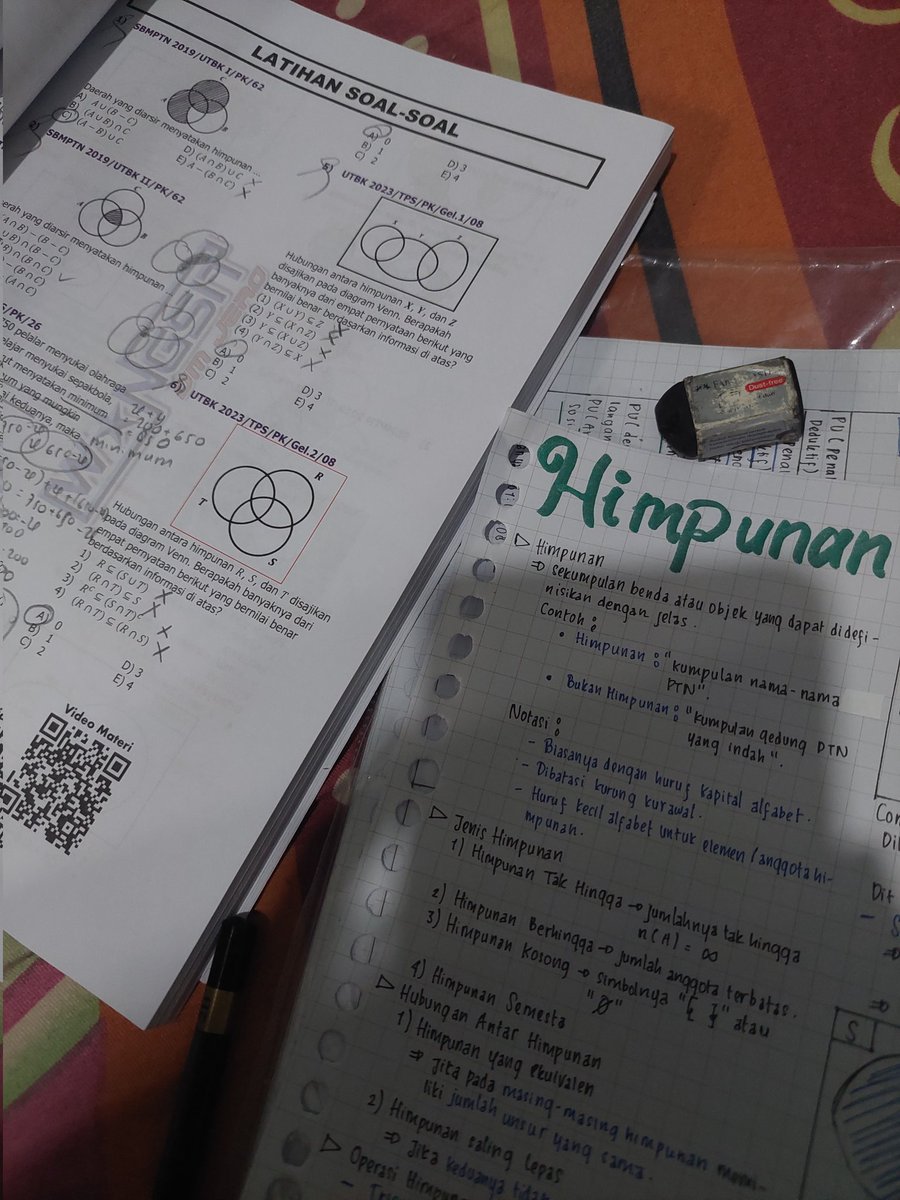 LATIHAN SOAL-SOAL
SBMPTN 2019/UTBK I/PK/62
C
B
Daerah yang diarsir menyatakan himpunan ...
A) A ∪ (B − C)
B) (A ∪ B) ∩ C
C) (A − B) ∪ C
D) (A ∩ B) ∪ C
E) A − (B ∩ C)
SBMPTN 2019/UTBK II/PK/62
A
C
B
erah yang diarsir menyatakan himpunan
A ∩ B) − (B − C)
∪ B) ∩ (B − C)
− (B ∩ C)
(A ∩ C)
/PK/26
750 pelajar menyukai olahraga
elajar menyukai sepakbola,
ut menyatakan minimum
um yang mungkin
ai keduanya, maka
700 + 650
minimum
A) 0
B) 1
C) 2
D) 3
E) 4
5) UTBK 2023/TPS/PK/Gel.1/08
X
Y
Z
Hubungan antara himpunan X, Y, dan Z
disajikan pada diagram Venn. Berapakah
banyaknya dari empat pernyataan berikut yang
bernilai benar berdasarkan informasi di atas?
(1) (X ∪ Y) ⊆ Z
(2) Y ⊆ (X ∩ Z)
(3) Y ⊆ (X ∪ Z)
(4) (Y ∩ Z) ⊆ X
A) 0
B) 1
C) 2
D) 3
E) 4
6) UTBK 2023/TPS/PK/Gel.2/08
R
T
S
Hubungan antara himpunan R, S, dan T disajikan
pada diagram Venn. Berapakah banyaknya dari
empat pernyataan berikut yang bernilai benar
berdasarkan informasi di atas?
1) R ⊆ (S ∪ T)
2) (R ∩ T) ⊆ S
3) Rᶜ ⊆ (S ∩ T)ᶜ
4) (R ∩ T) ⊆ (R ∩ S)
A) 0
B) 1
C) 2
D) 3
E) 4
Video Materi
Dust-free
PU (Penal
Deduktif)
Himpunan
▷ Himpunan
⇒ sekumpulan benda atau objek yang dapat didefi-
nisikan dengan jelas.
Contoh :
• Himpunan : "kumpulan nama-nama
PTN".
• Bukan Himpunan : "kumpulan gedung PTN
yang indah".
Notasi :
- Biasanya dengan huruf kapital alfabet.
- Dibatasi kurung kurawal.
- Huruf kecil alfabet untuk elemen / anggota hi-
mpunan.
▷ Jenis Himpunan
1) Himpunan Tak Hingga → jumlahnya tak hingga
n(A) = ∞
2) Himpunan Berhingga → jumlah anggota terbatas.
3) Himpunan Kosong → simbolnya "{ }" atau
"Ø"
4) Himpunan Semesta
▷ Hubungan Antar Himpunan
1) Himpunan yang ekuivalen
⇒ Jika pada masing-masing himpunan memi-
liki jumlah unsur yang sama.
2) Himpunan saling lepas
⇒ Jika keduanya tidak
▷ Operasi Himpunan
S